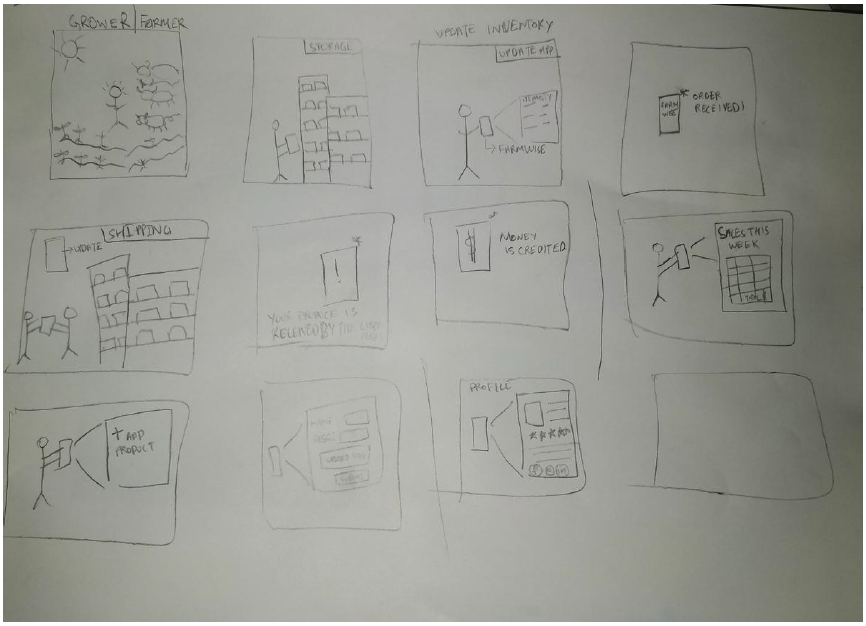 GROWER | FARMER
STORAGE
UPDATE INVENTORY
UPDATE APP
→ FARMWISE
FARM
WISE
ORDER
RECEIVED!
SHIPPING
→ UPDATE
!
YOUR
IS
BY THE
$
MONEY
IS CREDITED
SALES THIS
WEEK
TOTAL $
+ ADD
PRODUCT
PROFILE